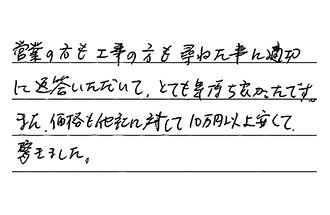 営業の方も工事の方も尋ねた事に適切
に返答いただいて、とても気持ち良かったです。
また、価格も他社に対して10万円以上安くて
驚きました。